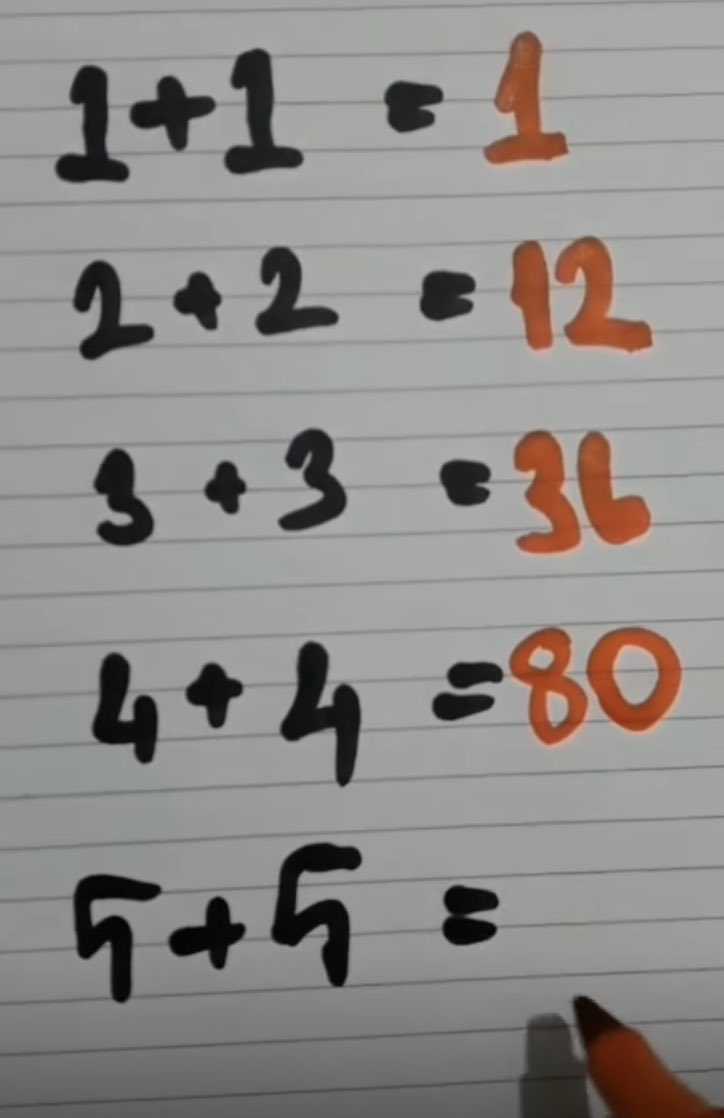 1+1 = 1
2+2 = 12
3+3 = 36
4+4 = 80
5+5 =